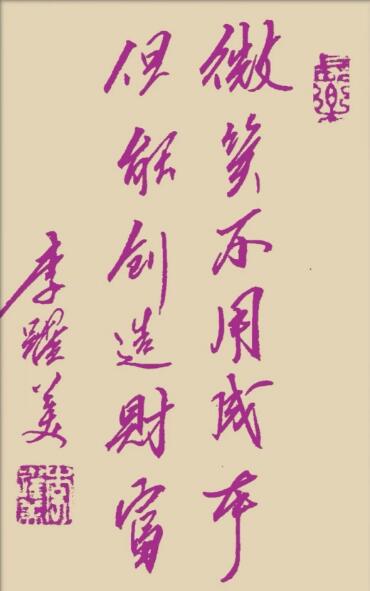 微笑不用成本
但能创造財富
李躍美